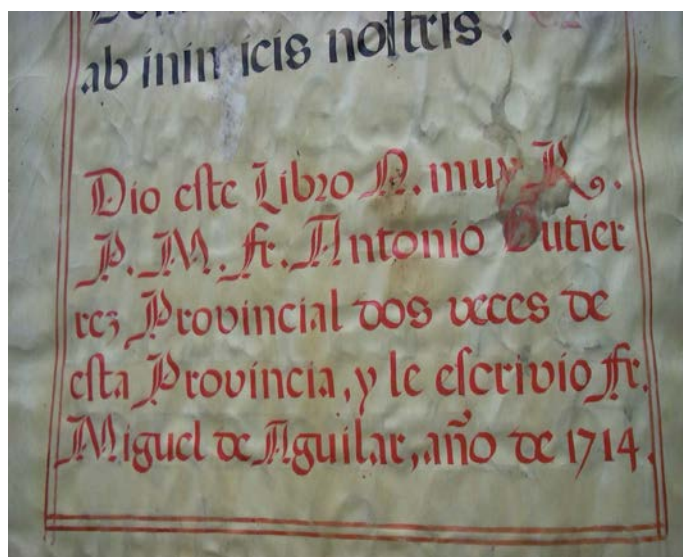 ab inimicis noſtris.
Dio eſte Libro N. muy R.
P. M. fr. Antonio Gutier
rez Provincial dos veces de
eſta Provincia, y le eſcrivio fr.
Miguel de Aguilar, año de 1714.